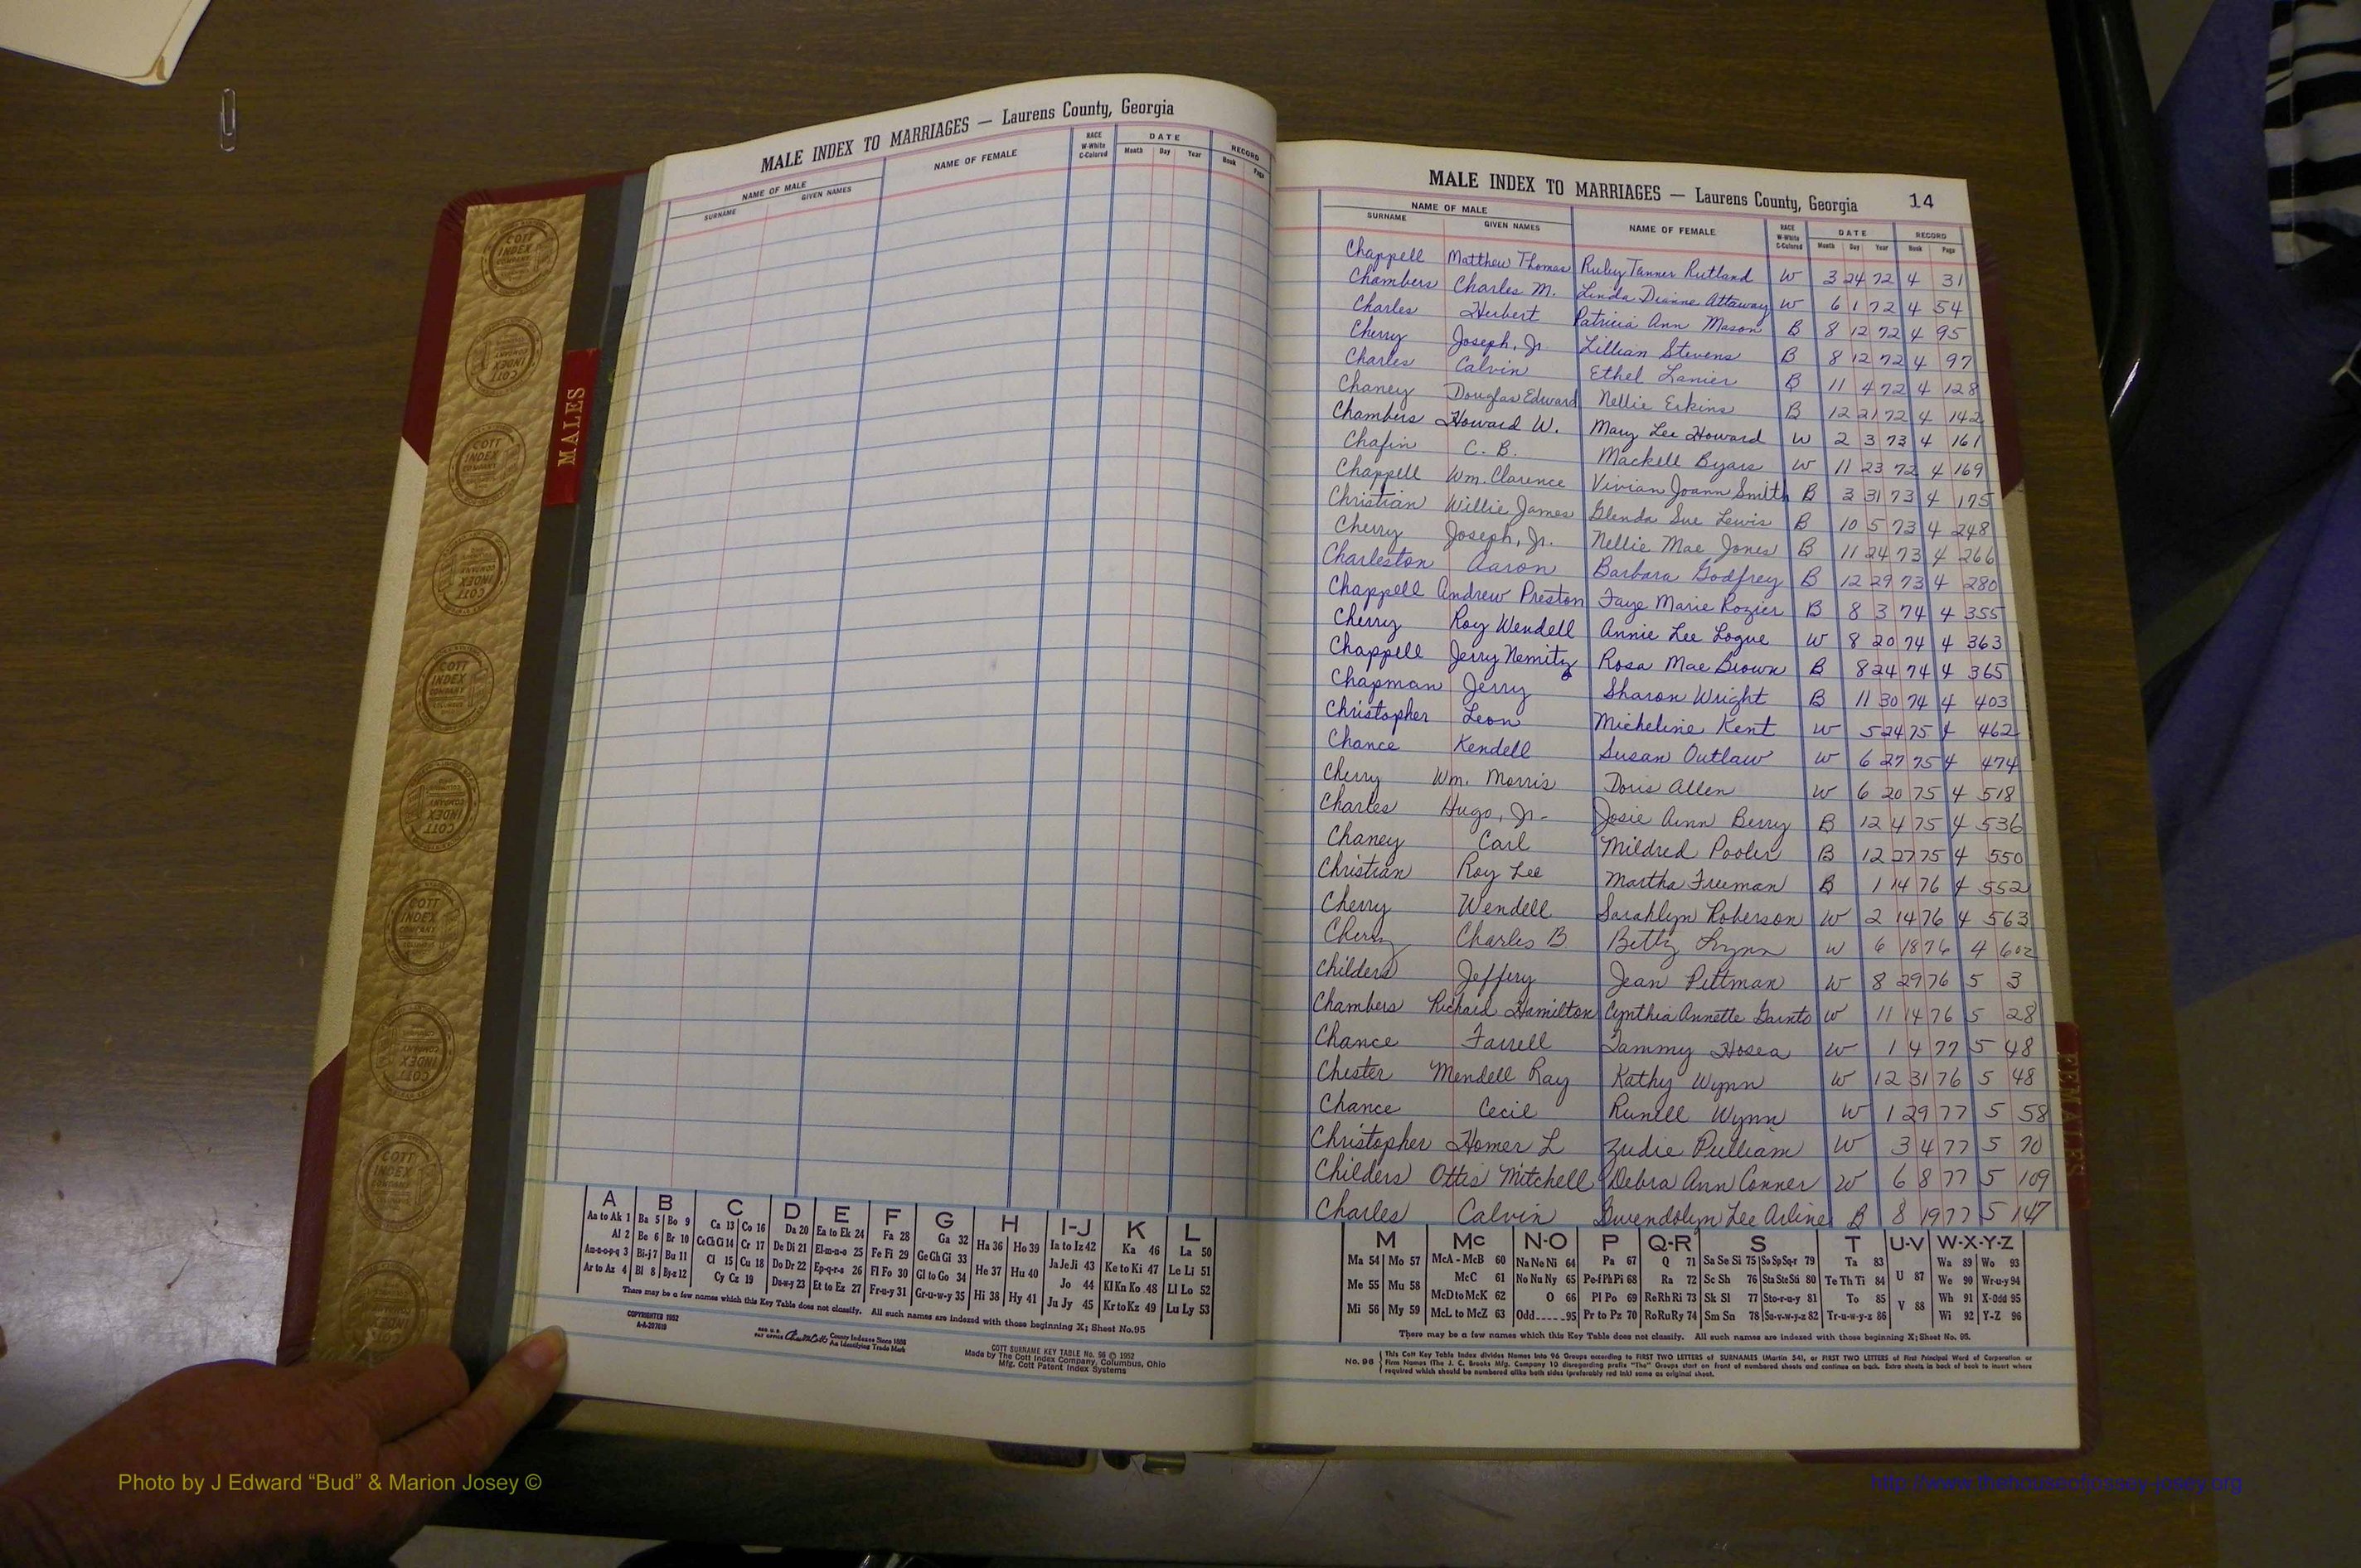 MALE INDEX TO MARRIAGES — Laurens County, Georgia
NAME OF MALE
SURNAME GIVEN NAMES NAME OF FEMALE RACE W-White C-Colored DATE Month Day Year RECORD Book Page
MALES
A B C D E F G H I-J K L
Aa to Ak 1 Ba 5 Bo 9 Ca 13 Co 16 Da 20 Ea to Ek 24 Fa 28 Ga 32 Ha 36 Ho 39 Ia to Iz 42 Ka 46 La 50
Al 2 Be 6 Br 10 Ce Ch Ci 14 Cr 17 De Di 21 El-m-n-o 25 Fe Fi 29 Ge Gh Gi 33 He 37 Hu 40 Ja Je Ji 43 Ke to Ki 47 Le Li 51
An-o-o-p-q 3 Bi-j 7 Bu 11 Cl 15 Cu 18 Do Dr 22 Ep-q-r-s 26 Fl Fo 30 Gl to Go 34 Hi 38 Hy 41 Jo 44 Kl Kn Ko 48 Ll Lo 52
Ar to Az 4 Bl 8 By-z 12 Cy Cz 19 Du-w-y 23 Et to Ez 27 Fr-u-y 31 Gr-u-w-y 35 Ju Jy 45 Kr to Kz 49 Lu Ly 53
There may be a few names which this Key Table does not classify. All such names are indexed with those beginning X; Sheet No.95
COPYRIGHTED 1952
A-A-207619
County Indexes Since 1888
An Identifying Trade Mark
COTT SURNAME KEY TABLE No. 96 © 1952
Made by The Cott Index Company, Columbus, Ohio
Mfg. Cott Patent Index Systems
MALE INDEX TO MARRIAGES — Laurens County, Georgia 14
NAME OF MALE
SURNAME GIVEN NAMES NAME OF FEMALE RACE W-White C-Colored DATE Month Day Year RECORD Book Page
Chappell Matthew Thomas Ruby Tanner Rutland W 3 24 72 4 31
Chambers Charles M. Linda Dianne Attaway W 6 1 72 4 54
Charles Herbert Patricia Ann Mason B 8 12 72 4 95
Cherry Joseph, Jr Lillian Stevens B 8 12 72 4 97
Charles Calvin Ethel Lanier B 11 4 72 4 128
Chaney Douglas Edward Nellie Erkins B 12 21 72 4 142
Chambers Howard W. Mary Lee Howard W 2 3 73 4 161
Chafin C. B. Mackell Byars W 11 23 72 4 169
Chappell Wm. Clarence Vivian Joann Smith B 3 31 73 4 175
Christian Willie James Glenda Sue Lewis B 10 5 73 4 248
Cherry Joseph, Jr. Nellie Mae Jones B 11 24 73 4 266
Charleston Aaron Barbara Godfrey B 12 29 73 4 280
Chappell Andrew Preston Faye Marie Rozier B 8 3 74 4 355
Cherry Roy Wendell Annie Lee Logue W 8 20 74 4 363
Chappell Jerry Nemitz Rosa Mae Brown B 8 24 74 4 365
Chapman Jerry Sharon Wright B 11 30 74 4 403
Christopher Leon Micheline Kent W 5 24 75 4 462
Chance Kendell Susan Outlaw W 6 27 75 4 474
Cherry Wm. Morris Doris Allen W 6 20 75 4 518
Charles Hugo, Jr. Josie Ann Berry B 12 4 75 4 536
Chaney Carl Mildred Pooler B 12 27 75 4 550
Christian Roy Lee Martha Freeman B 1 14 76 4 552
Cherry Wendell Sarahlyn Roberson W 2 14 76 4 563
Cherry Charles B Betty Lynn W 6 18 76 4 602
Childers Jeffery Jean Pittman W 8 29 76 5 3
Chambers Richard Hamilton Cynthia Annette Gainto W 11 14 76 5 28
Chance Farrell Tammy Hosea W 1 4 77 5 48
Chester Mendell Ray Kathy Wynn W 12 31 76 5 48
Chance Cecil Runell Wynn W 1 29 77 5 58
Christopher Homer L Zudie Pulliam W 3 4 77 5 70
Childers Ottis Mitchell Debra Ann Conner W 6 8 77 5 109
Charles Calvin Gwendolyn Lee Arline B 8 19 77 5 147
M Mc N-O P Q-R S T U-V W-X-Y-Z
Ma 54 Mo 57 McA - McB 60 Na Ne Ni 64 Pa 67 Q 71 Sa Se Si 75 So Sp Sq-r 79 Ta 83 Wa 89 Wo 93
Me 55 Mu 58 McC 61 No Nu Ny 65 Pe-f Ph Pi 68 Ra 72 Sc Sh 76 Sta Ste Sti 80 Te Th Ti 84 U 87 We 90 Wr-u-y 94
McD to McK 62 O 66 Pl Po 69 Re Rh Ri 73 Sk Sl 77 Sto-r-u-y 81 To 85 Wh 91 X-Odd 95
Mi 56 My 59 McL to McZ 63 Odd 95 Pr to Pz 70 Ro Ru Ry 74 Sm Sn 78 Su-v-w-y-z 82 Tr-u-w-y-z 86 V 88 Wi 92 Y-Z 96
There may be a few names which this Key Table does not classify. All such names are indexed with those beginning X; Sheet No. 95.
No. 96 This Cott Key Table Index divides Names into 96 Groups according to FIRST TWO LETTERS of SURNAMES (Martin 54), or FIRST TWO LETTERS of First Principal Word of Corporation or
Firm Names (The J. C. Brooks Mfg. Company 10 disregarding prefix "The" Groups start on front of numbered sheets and continue on back. Extra sheets in back of book to insert where
required which should be numbered alike both sides (preferably red ink) same as original sheet.
FEMALES
Photo by J Edward “Bud” & Marion Josey ©
http://www.thehouseofjosacy-josey.org